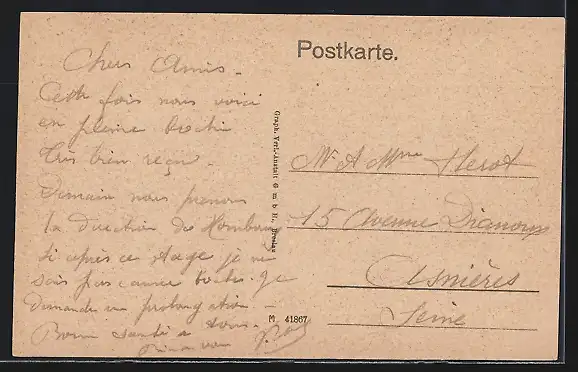 Postkarte.
Chers Amis -
Cette fois nous voici
en pleine
très bien reçu -
Demain nous prenons
la direction de Hambourg
si après ce stage je ne
suis pas Je
demande une prolongation -
Bonne santé à tous -
Graph. Verl.-Anstalt G m b H., Breslau
M. 41867
Mr & Mme Herot
15 Avenue
Asnières
Seine